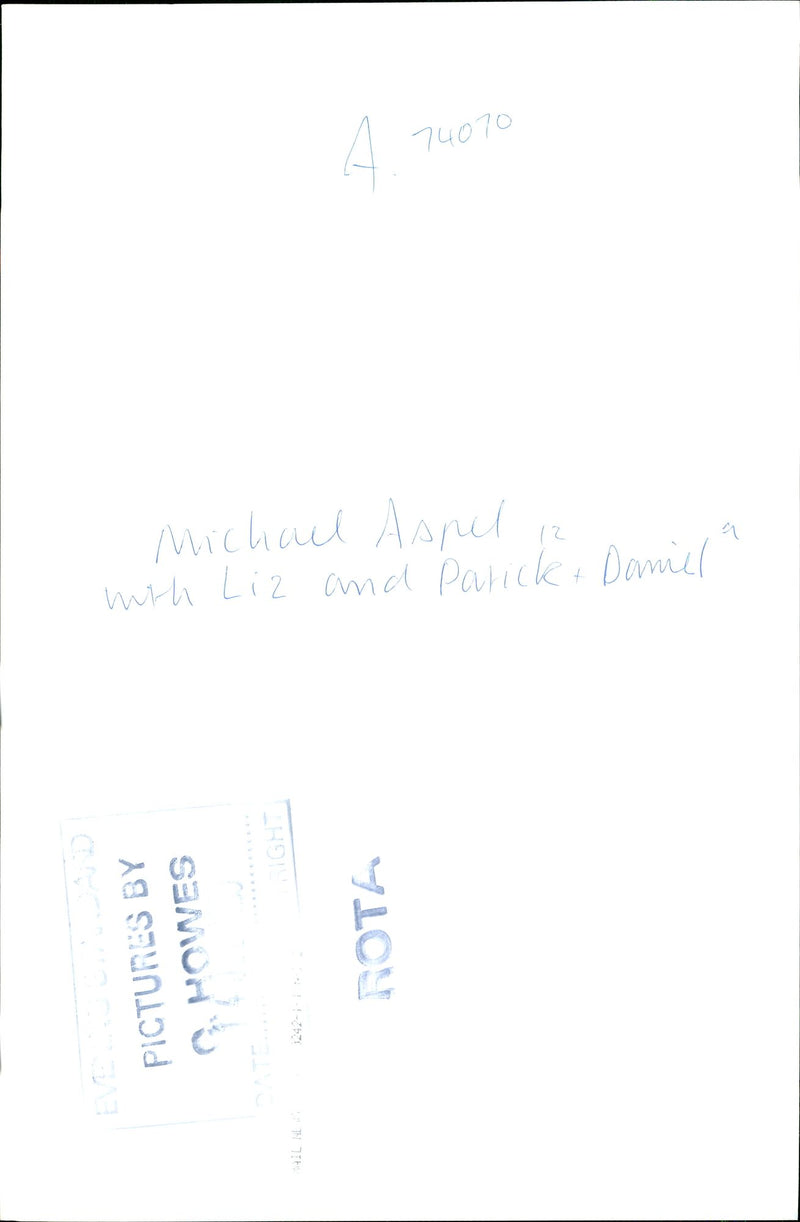 A. 74070
Michael Aspel 12 9
with Liz and Patrick + Daniel
EVENING STANDARD
PICTURES BY
G. HOWES
DATE
RIGHT
3242-1-1
ROTA